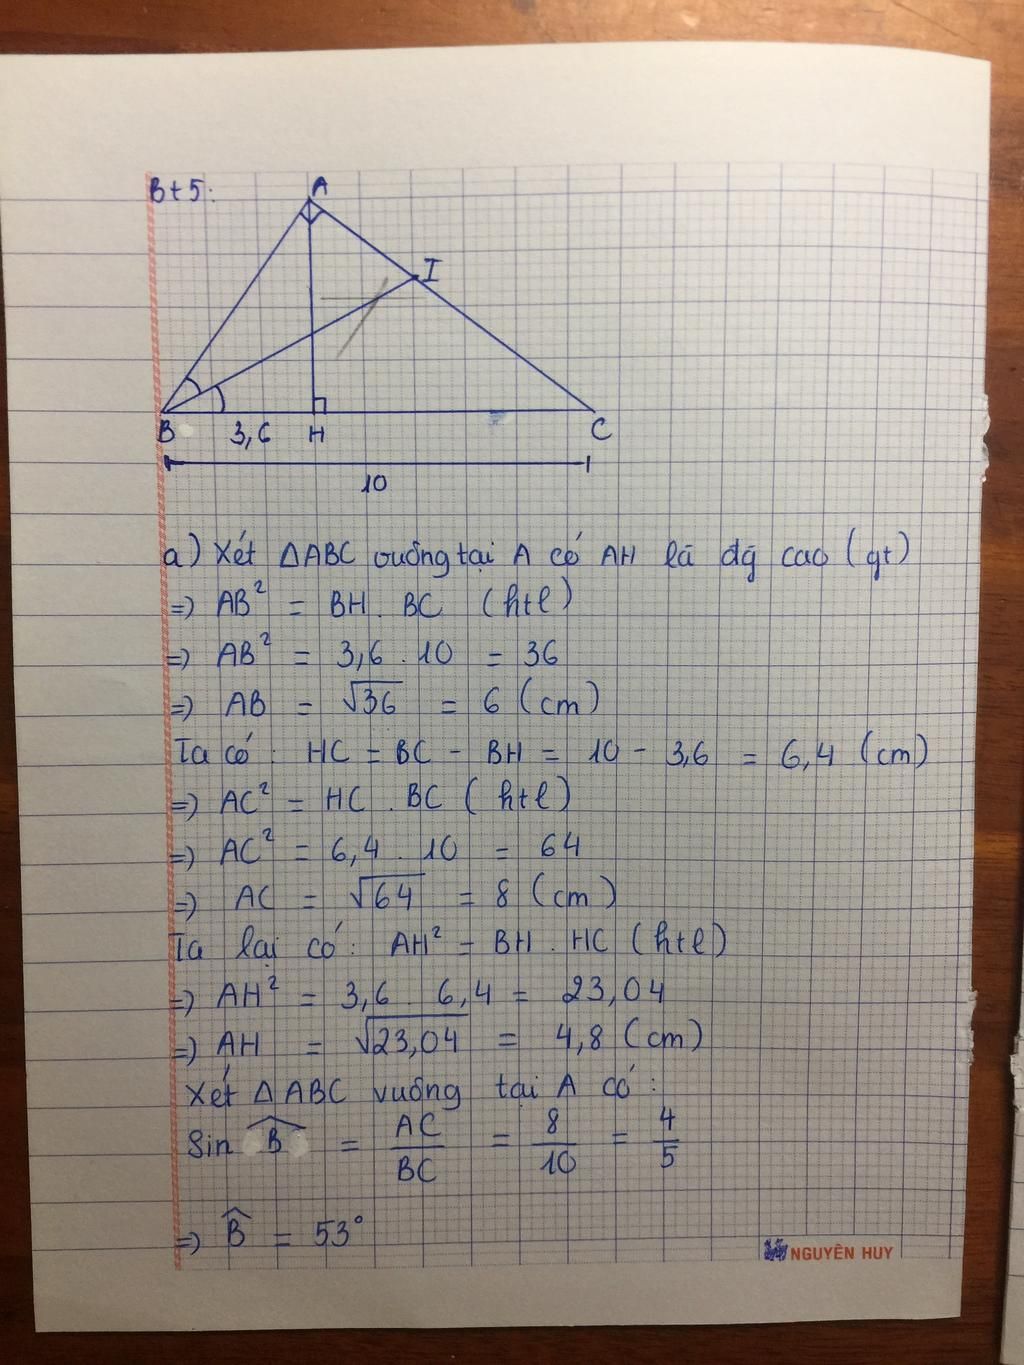 Bt 5:
A
I
B 3,6 H C
10
a) Xét ΔABC vuông tại A có AH là đg̃ cao (gt)
=) AB² = BH . BC (htl)
=) AB² = 3,6 . 10 = 36
=) AB = √36 = 6 (cm)
Ta có : HC = BC - BH = 10 - 3,6 = 6,4 (cm)
=) AC² = HC . BC ( htl)
=) AC² = 6,4 . 10 = 64
=) AC = √64 = 8 (cm)
Ta lại có : AH² = BH . HC (htl)
=) AH² = 3,6 . 6,4 = 23,04
=) AH = √23,04 = 4,8 (cm)
Xét ΔABC vuông tại A có :
Sin B̂ = AC/BC = 8/10 = 4/5
=) B̂ = 53°
NGUYÊN HUY